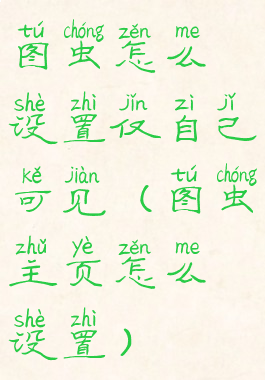 tú chóng zěn me
图虫怎么
shè zhì jǐn zì jǐ
设置仅自己
kě jiàn tú chóng
可见（图虫
zhǔ yè zěn me
主页怎么
shè zhì
设置）